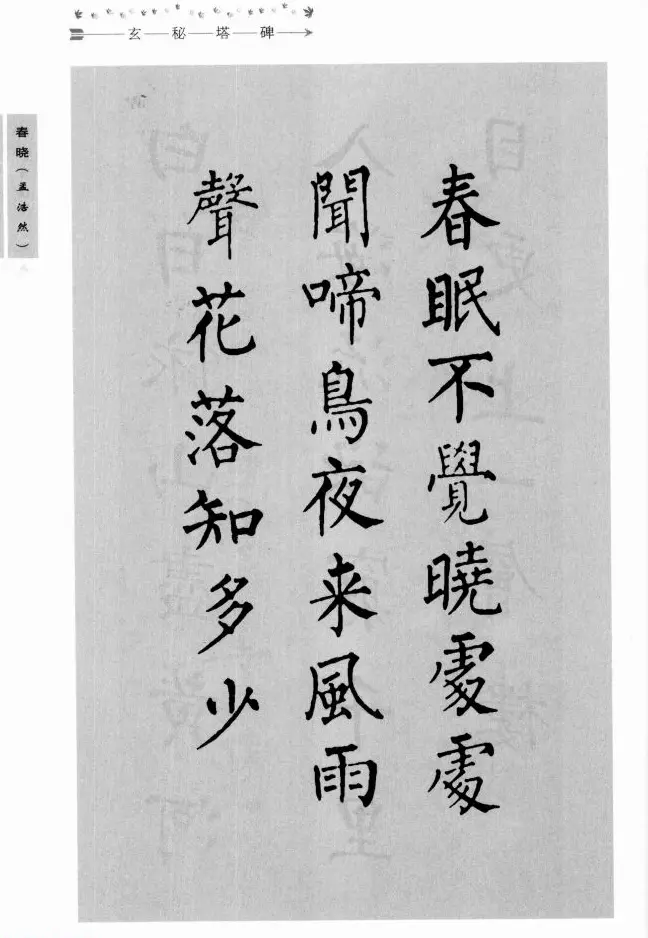 玄秘塔碑
春晓(孟浩然)
春眠不覺曉處處
聞啼鳥夜来風雨
聲花落知多少